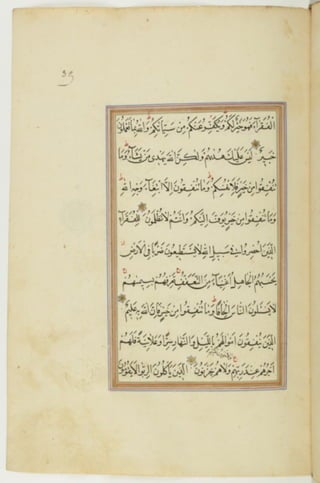 ٣٥
الْفُقَرَآءَ فَهُوَ خَيْرٌ لَكُمْ وَيُكَفِّرُ عَنْكُمْ مِنْ سَيِّاٰتِكُمْ وَاللّٰهُ بِمَا تَعْمَلُونَ
خَبِيرٌ لَيْسَ عَلَيْكَ هُدٰيهُمْ وَلٰكِنَّ اللّٰهَ يَهْدِى مَنْ يَشَآءُ وَمَا
تُنْفِقُوا مِنْ خَيْرٍ فَلِاَنْفُسِكُمْ وَمَا تُنْفِقُونَ اِلَّا ابْتِغَآءَ وَجْهِ اللّٰهِ
وَمَا تُنْفِقُوا مِنْ خَيْرٍ يُوَفَّ اِلَيْكُمْ وَاَنْتُمْ لَا تُظْلَمُونَ لِلْفُقَرَآءِ
الَّذِينَ اُحْصِرُوا فِى سَبِيلِ اللّٰهِ لَا يَسْتَطِيعُونَ ضَرْبًا فِى الْاَرْضِ
يَحْسَبُهُمُ الْجَاهِلُ اَغْنِيَآءَ مِنَ التَّعَفُّفِ تَعْرِفُهُمْ بِسِيمٰيهُمْ
لَا يَسْـَٔلُونَ النَّاسَ اِلْحَافًا وَمَا تُنْفِقُوا مِنْ خَيْرٍ فَاِنَّ اللّٰهَ بِهِ عَلِيمٌ
اَلَّذِينَ يُنْفِقُونَ اَمْوَالَهُمْ بِالَّيْلِ وَالنَّهَارِ سِرًّا وَعَلَانِيَةً فَلَهُمْ
اَجْرُهُمْ عِنْدَ رَبِّهِمْ وَلَا خَوْفٌ عَلَيْهِمْ وَلَا هُمْ يَحْزَنُونَ اَلَّذِينَ يَاْكُلُونَ الرِّبٰوا لَا يَقُومُونَ